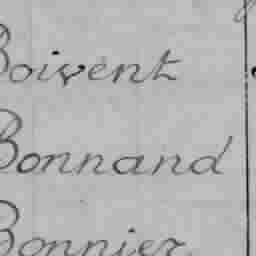 Boivent
Bonnand
Bonnier